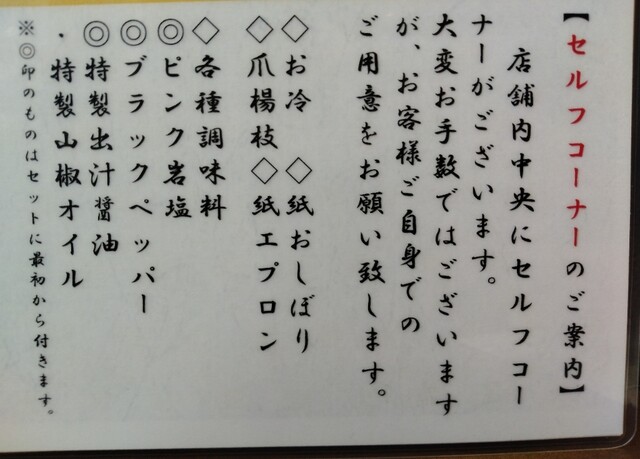 【セルフコーナーのご案内】
店舗内中央にセルフコー
ナーがございます。
大変お手数ではございます
が、お客様ご自身での
ご用意をお願い致します。
◇お冷 ◇紙おしぼり
◇爪楊枝◇紙エプロン
◇各種調味料
◎ピンク岩塩
◎ブラックペッパー
◎特製出汁醤油
・特製山椒オイル
※◎印のものはセットに最初から付きます。